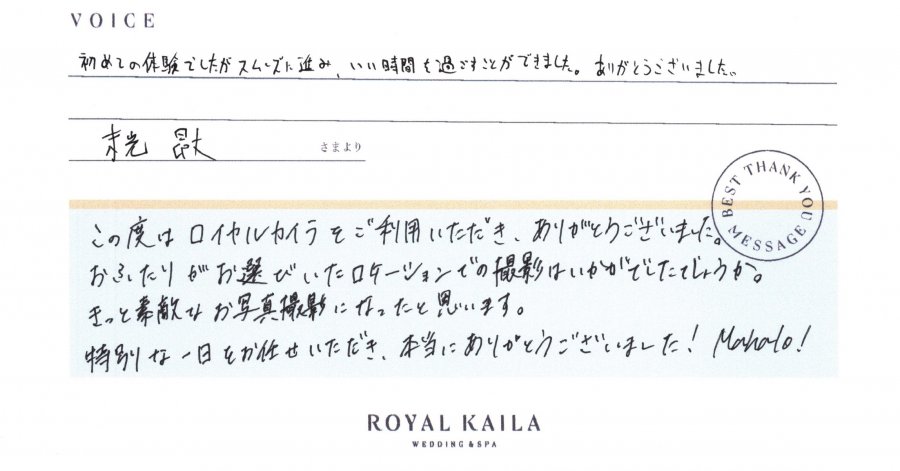 VOICE
初めての体験でしたがスムーズに進み、いい時間を過ごすことができました。ありがとうございました。
さまより
BEST THANK YOU MESSAGE
この度はロイヤルカイラをご利用いただき、ありがとうございました。
おふたりがお選びいたロケーションでの撮影はいかがでしたでしょうか。
きっと素敵なお写真撮影になったと思います。
特別な一日をお任せいただき、本当にありがとうございました! Mahalo!
ROYAL KAILA
WEDDING & SPA